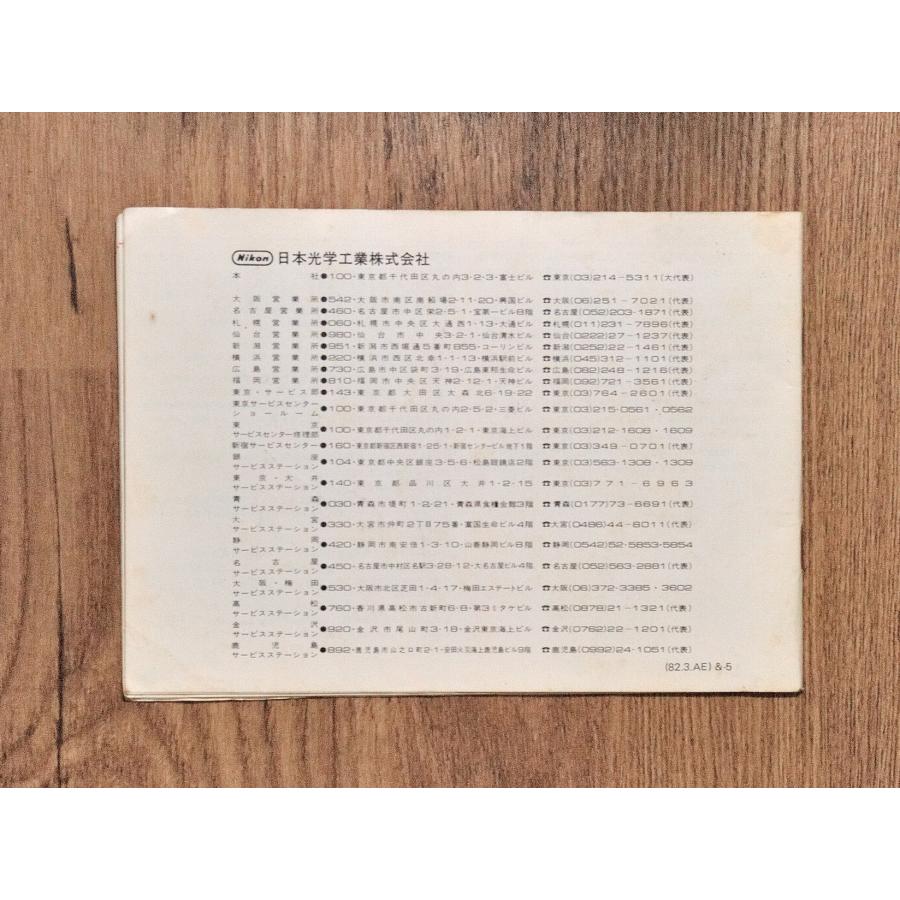 Nikon 日本光学工業株式会社
本社●100・東京都千代田区丸の内3-2-3・富士ビル ☎東京(03)214-5311(大代表)
大阪営業所●542・大阪市南区南船場2-11-20・興国ビル ☎大阪(06)251-7021(代表)
名古屋営業所●460・名古屋市中区栄2-5-1・宝第一ビル8階 ☎名古屋(052)203-1871(代表)
札幌営業所●060・札幌市中央区大通西1-13・大通ビル ☎札幌(011)231-7896(代表)
仙台営業所●980・仙台市中央3-2-1・仙台清水ビル ☎仙台(0222)27-1237(代表)
新潟営業所●951・新潟市西堀通5番町855・コーリンビル ☎新潟(0252)22-1461(代表)
横浜営業所●220・横浜市西区北幸1-1-13・横浜駅前ビル ☎横浜(045)312-1101(代表)
広島営業所●730・広島市中区袋町3-19・広島東邦生命ビル ☎広島(082)248-1216(代表)
福岡営業所●810・福岡市中央区天神2-12-1・天神ビル ☎福岡(092)721-3561(代表)
東京・サービス部●143・東京都大田区大森北6-19-22 ☎東京(03)764-2601(代表)
東京サービスセンター
ショールーム●100・東京都千代田区丸の内2-5-2・三菱ビル ☎東京(03)215-0561・0562
東京
サービスセンター修理部●100・東京都千代田区丸の内1-2-1・東京海上ビル ☎東京(03)212-1608・1609
新宿サービスセンター●160・東京都新宿区西新宿1-25-1・新宿センタービル地下1階 ☎東京(03)349-0701(代表)
銀座
サービスステーション●104・東京都中央区銀座3-5-6・松島眼鏡店2階 ☎東京(03)563-1308・1309
東京・大井
サービスステーション●140・東京都品川区大井1-2-15 ☎東京(03)771-6963
青森
サービスステーション●030・青森市堤町1-2-21・青森県食糧会館3階 ☎青森(0177)73-6691(代表)
大宮
サービスステーション●330・大宮市仲町2丁目75番・富国生命ビル4階 ☎大宮(0486)44-8011(代表)
静岡
サービスステーション●420・静岡市南安倍1-3-10・山善静岡ビル8階 ☎静岡(0542)52-5853・5854
名古屋
サービスステーション●450・名古屋市中村区名駅3-28-12・大名古屋ビル4階 ☎名古屋(052)563-2881(代表)
大阪・梅田
サービスステーション●530・大阪市北区芝田1-4-17・梅田エステートビル ☎大阪(06)372-3385・3602
高松
サービスステーション●760・香川県高松市古新町6-8・第3ミタケビル ☎高松(0878)21-1321(代表)
金沢
サービスステーション●920・金沢市尾山町3-18・金沢東京海上ビル ☎金沢(0762)22-1201(代表)
鹿児島
サービスステーション●892・鹿児島市山之口町2-1・安田火災海上鹿児島ビル9階 ☎鹿児島(0992)24-1051(代表)
(82.3.AE) &-5